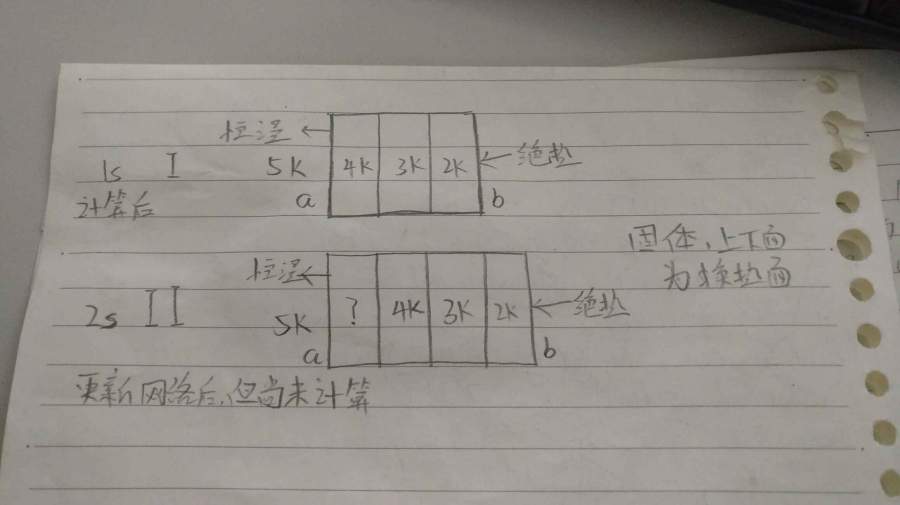 恒温
1s I 5K 4K 3K 2K 绝热
计算后 a b
固体,上下面
为换热面
恒温
2s II 5K ? 4K 3K 2K 绝热
a b
更新网络后,但尚未计算